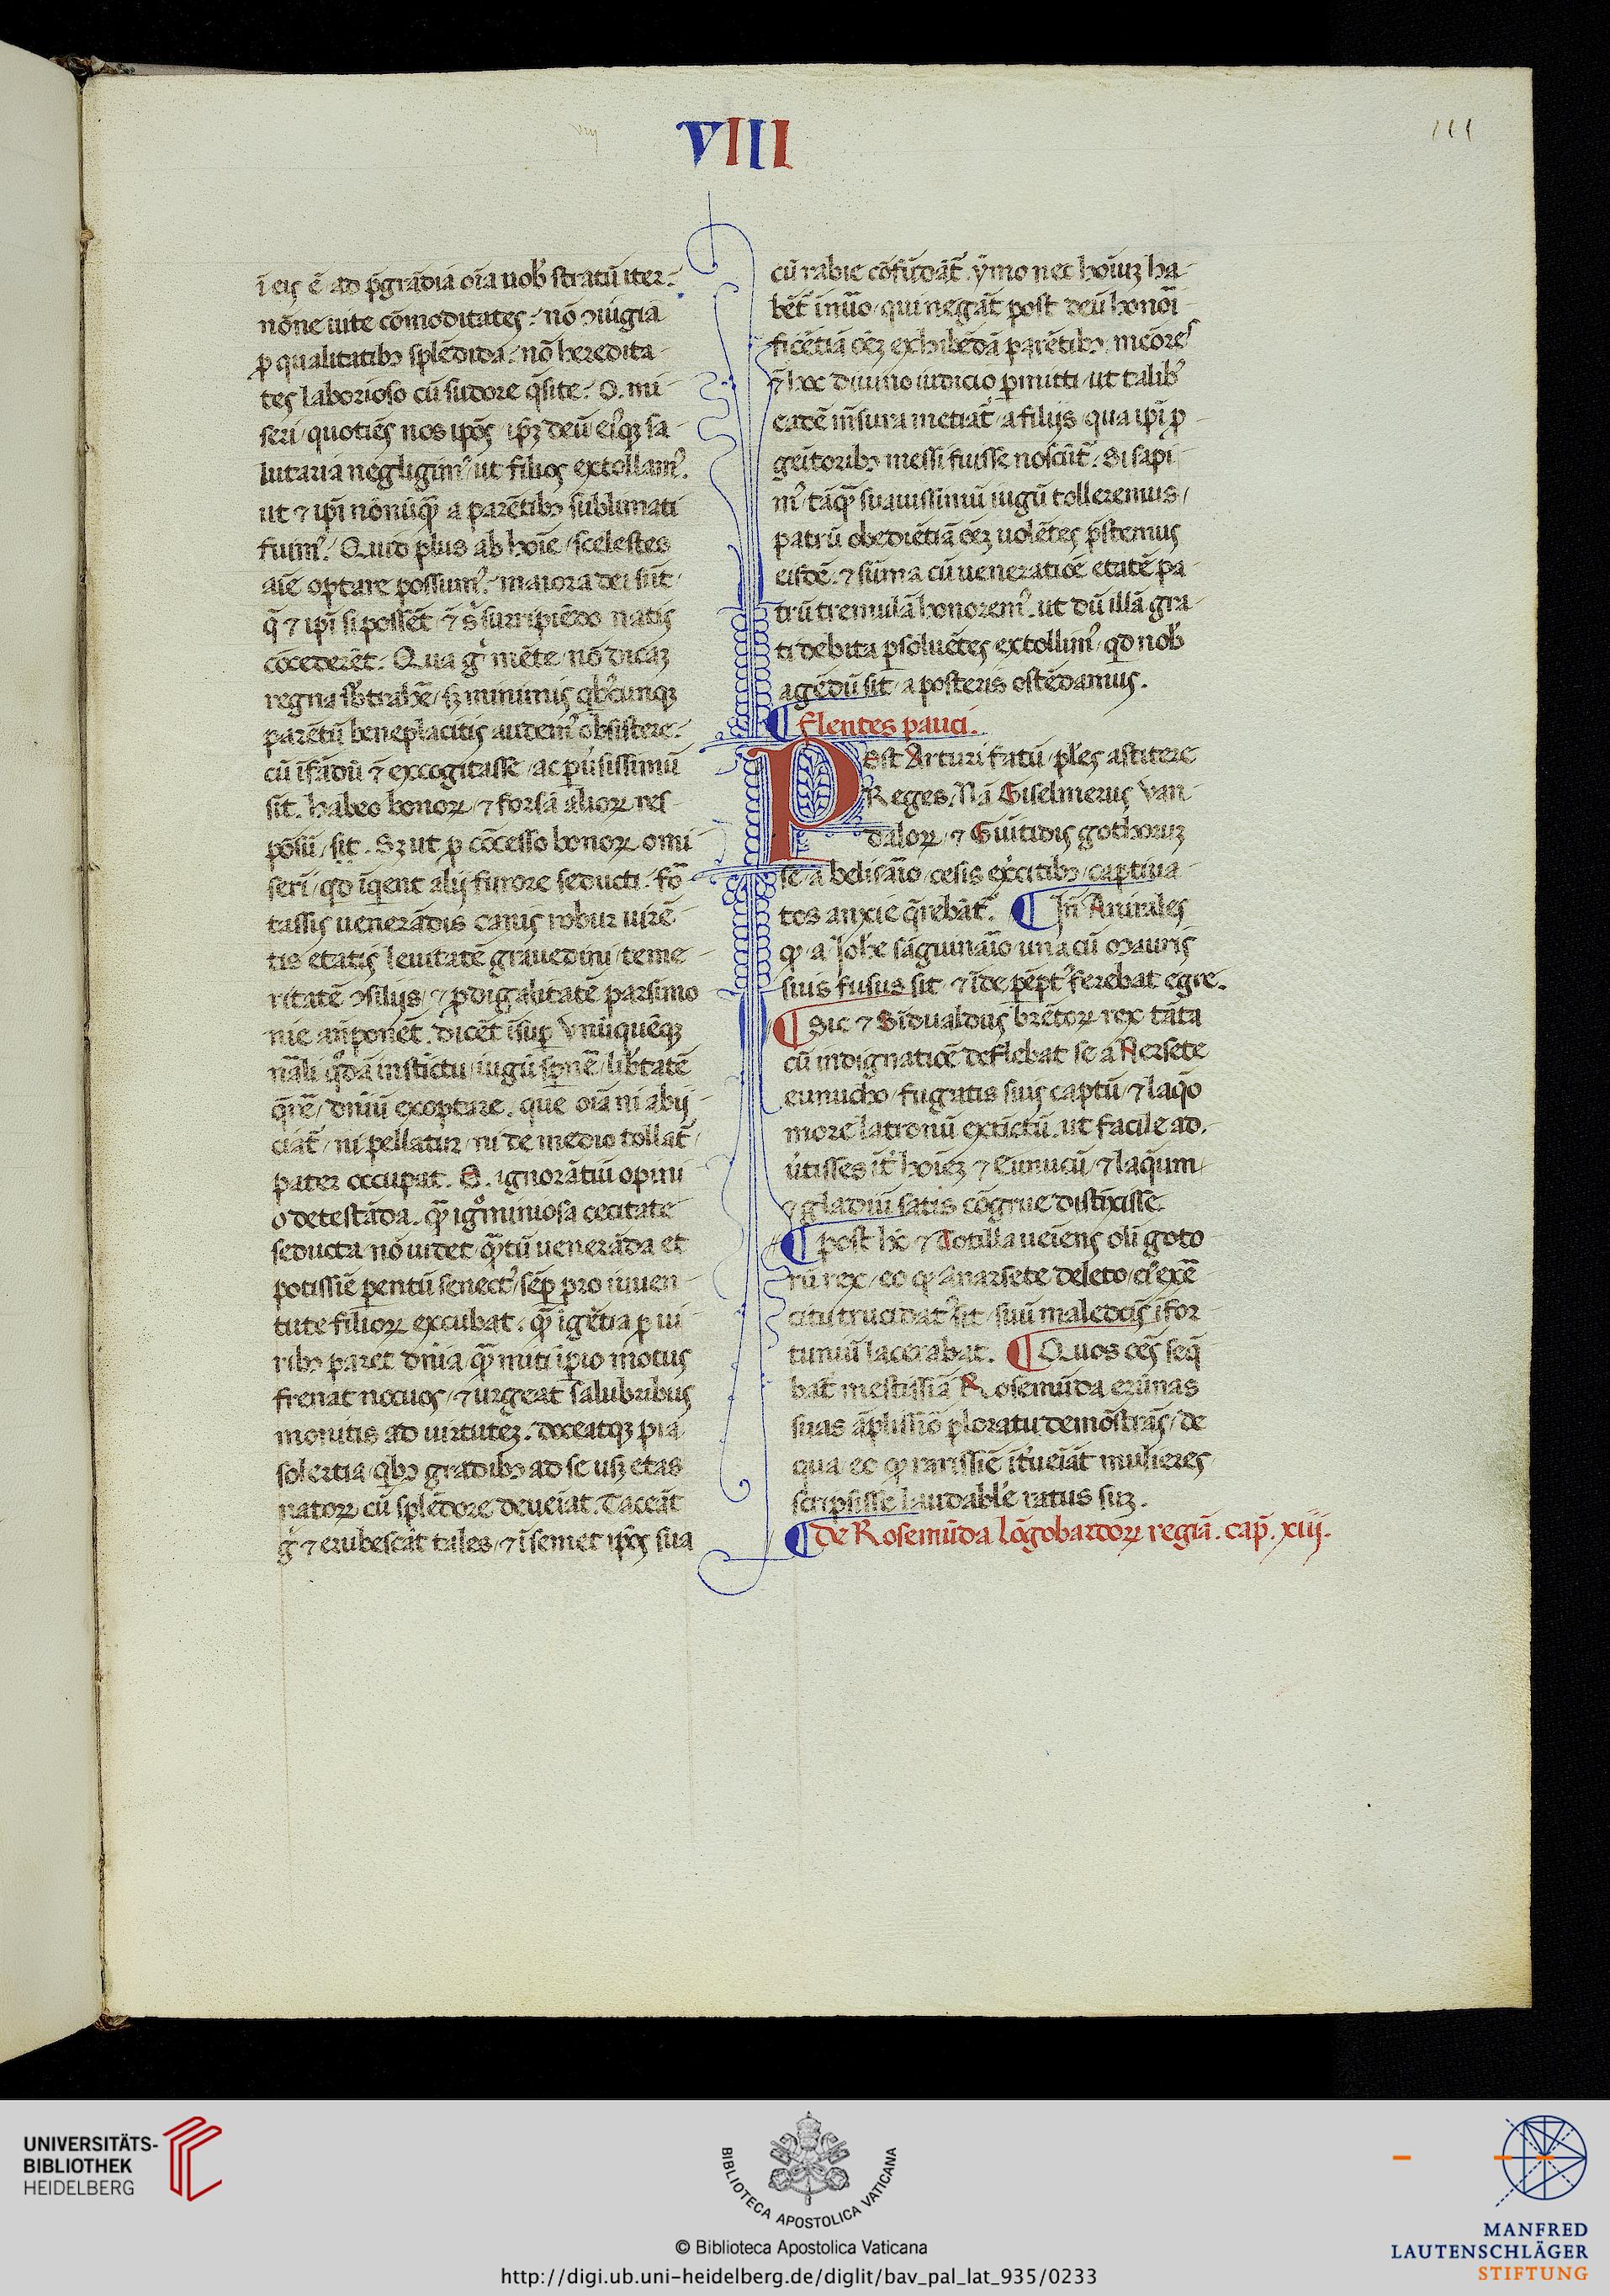 VIII
111
ī eis ē ad p̄grādia oīa uob̓ stratū iter.
nōne uite cōmoditates. nō ꝯiugia
p qualitatibꝫ splēdida. nō heredita-
tes laborioso cū sudore q̄site. O. mi-
seri quotiēs nos ip̄os ip̄ꝫ deū eiꝰqꝫ sa-
lutaria negligimꝰ ut filios extollamꝰ.
ut ⁊ ip̄i nōnūq̄ꝫ a parētibꝫ sublimati
fuimꝰ. Quid plus ab hoīe scelestes
aīe optare possumꝰ. maiora dei sūt
q̄ ⁊ ip̄i si possēt surripiēdo natis
cōcederēt. Qua gͥ mēte nō dicaꝫ
regna sꝫ minimis
parētū beneplacitis audemꝰ obsistere.
cū īfādū ē excogitasse ac puͥsissimū
sit. habeo bonoꝝ ⁊ forsā alioꝝ res-
pōsū sit. Sꝫ ut p cōcesso bonoꝝ omi
serī qd̄ īqͥent alij furore seducti. fo-
tassis uenerādis canis robur uirē-
tis etatis leuitatē grauedini teme-
ritatē ꝯsilijs ⁊ pdigalitatē parsimo
nie an̄ponēt. dicēt īsup Vnūquēqꝫ
nāli qͦdā instīctu iugū sp̄nē lib̓tatē
q̄rē dn̄iū exoptare. que oīa ni abij-
ciāt̄ ni pellatur ni de medio tollat̄
pater occupat. O. ignorātiū opini
o detestāda. q̄ꝫ igͦminiosa cecitate
seducta nō uidet q̄ꝫtū uenerāda et
potissīe pentū senectꝰ sēp pro iuuen-
tute filioꝝ excubat. q̄ꝫ īgētia p ui-
ribꝫ paret dn̄ia q̄ꝫ miti īpio motus
frenat nocuos ⁊ urgeat salubribus
monitis ad uirtuteꝫ. doceatqꝫ pia
solertia qͥbꝫ gradibꝫ ad se usqꝫ etas
natoꝝ cū splēdore deueīat. Taceāt
gͥ ⁊ erubescāt tales ⁊ ī semet ip̄os sua
cū rabie cōfūdāt̄. ymo nec hoīuꝫ ha-
bēt̄ inuͥo qui negāt post deū honoī-
ficētiā oēꝫ exhibēdā parētibꝫ meōres
hoc diuino iudicio pmitti ut talibꝰ
eadē m̄sura metiat̄ a filijs qua ipī p-
genitoribꝫ messi fuisse noscūt̄. Si sapi-
mꝰ tāq̄ꝫ suauissimū iugū tolleremus
patrū obediētiā oēꝫ uolētes p̄stemus
eisdē ⁊ sūma cū ueneratiōe etatē pa-
trū tremulā honoremꝰ. ut dū illā gra-
ti debita psoluētes extollimꝰ qd nob̓
agēdū sit a posteris ostēdamus.
¶ Flentes pauci.
Post Arturi fatū ples astitere
Reges. Nā Giselmerus Van-
daloꝝ ⁊ Guitidis gothoruꝫ
se a belisāio cesis exͥcitibꝫ captiua-
tos anxie q̄rebāt̄. ¶ In̄ Amrales
qꝫ a Johē sāguināio una cū Mauris
suis fusus sit ⁊ īde ferebat egre.
¶ Sic ⁊ Sīdualdus brētoꝝ rex tāta
cū indignatiōe deflebat se a Nersete
eunucho fugatis suis captū ⁊ laq̄o
more latronū extīctū. ut facile ad-
uͥtisses īt̄ hoīeꝫ ⁊ Eunucū ⁊ laqueum
⁊ gladiū satis cōgrue distīxisse.
¶ post hͦ ⁊ Totilla ueiens oli goto
rū rex eo qꝫ a narsete deleto eiꝰ exē-
citu trucidatꝰ sit suū maledcīs īfor-
tuniū lacerabat. ¶ Quos oēs seq̄-
bat̄ mestissīa Rosemūda erūnas
suas āplissīo ploratu demōstrās de
qua eo qꝫ rarissīe īt̄ueiāt mulieres
scripsisse laudabl̓e ratus suꝫ.
¶ de Rosemūda lōgobardoꝝ regiā. cap̄. xiij.
UNIVERSITÄTS-
BIBLIOTHEK
HEIDELBERG
BIBLIOTECA APOSTOLICA VATICANA
© Biblioteca Apostolica Vaticana
http://digi.ub.uni-heidelberg.de/diglit/bav_pal_lat_935/0233
MANFRED
LAUTENSCHLÄGER
STIFTUNG